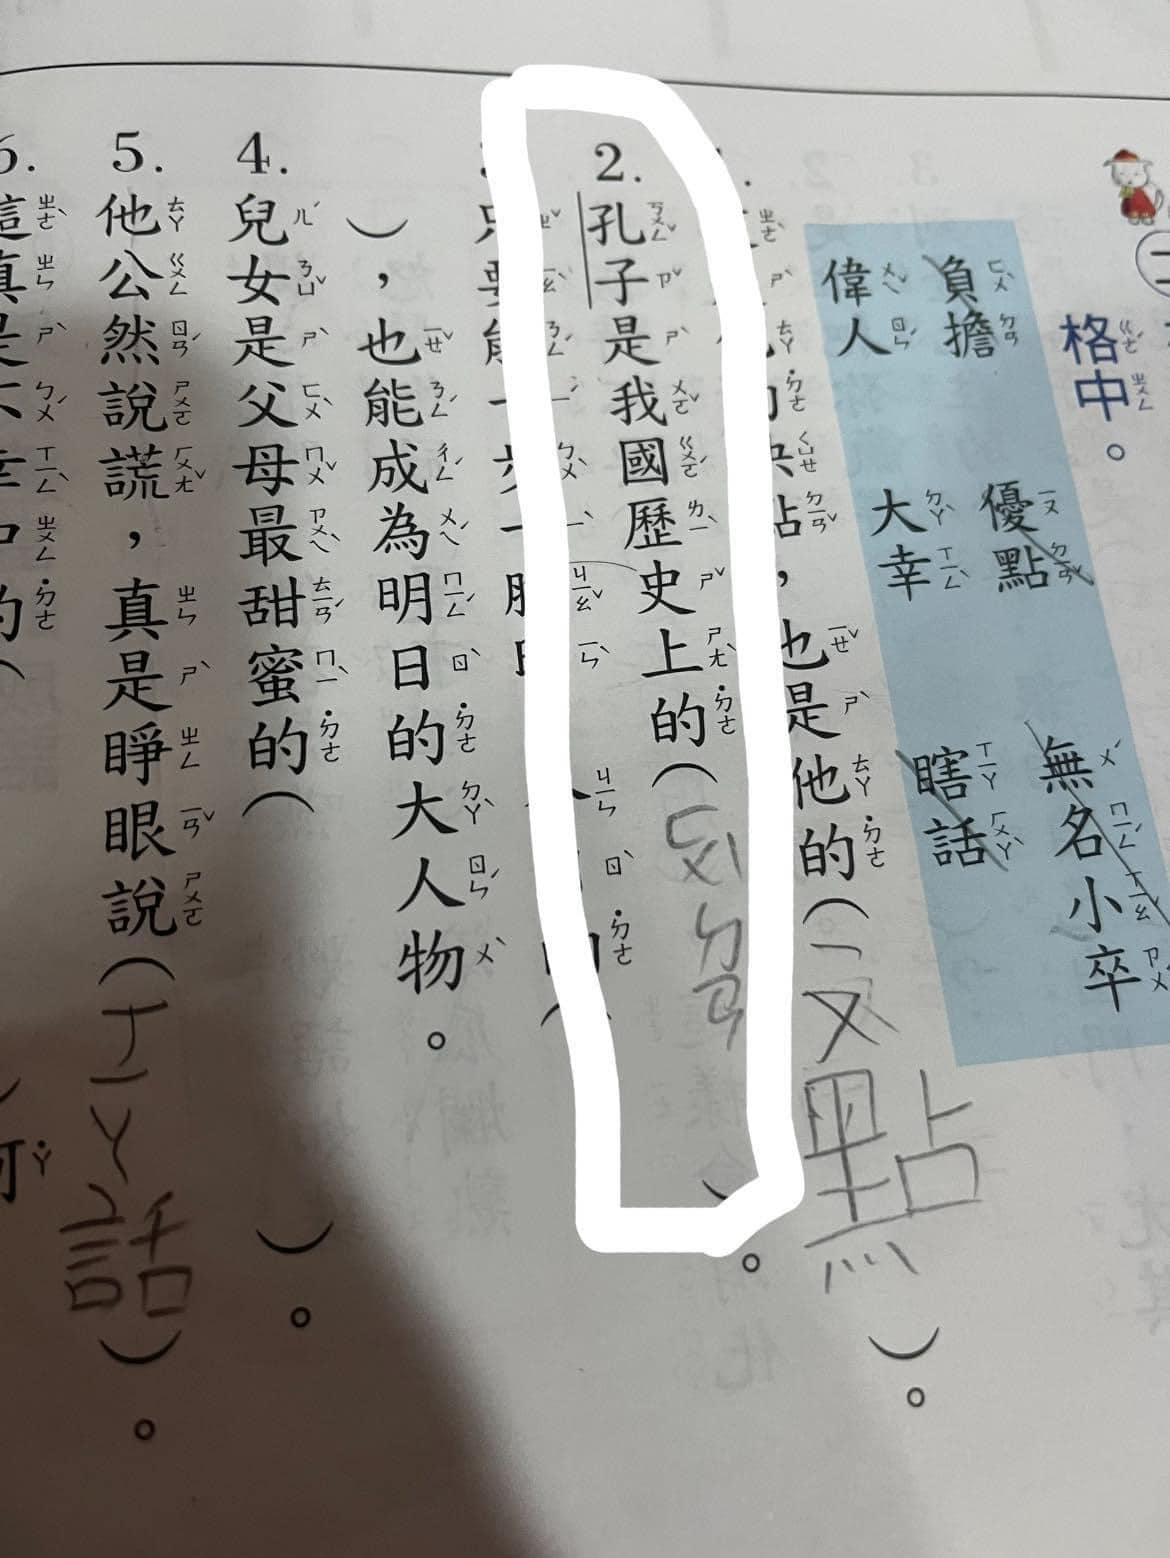 格中。
負擔 優點 無名小卒
偉人 大幸 瞎話
點，也是他的(ㄧㄡ點)。
2.孔子是我國歷史上的(ㄈㄨˋㄉㄢ)。
(
)，也能成為明日的大人物。
4.兒女是父母最甜蜜的()。
5.他公然說謊，真是睜眼說(ㄒㄧㄚ話)。
6.這真是不幸中的(